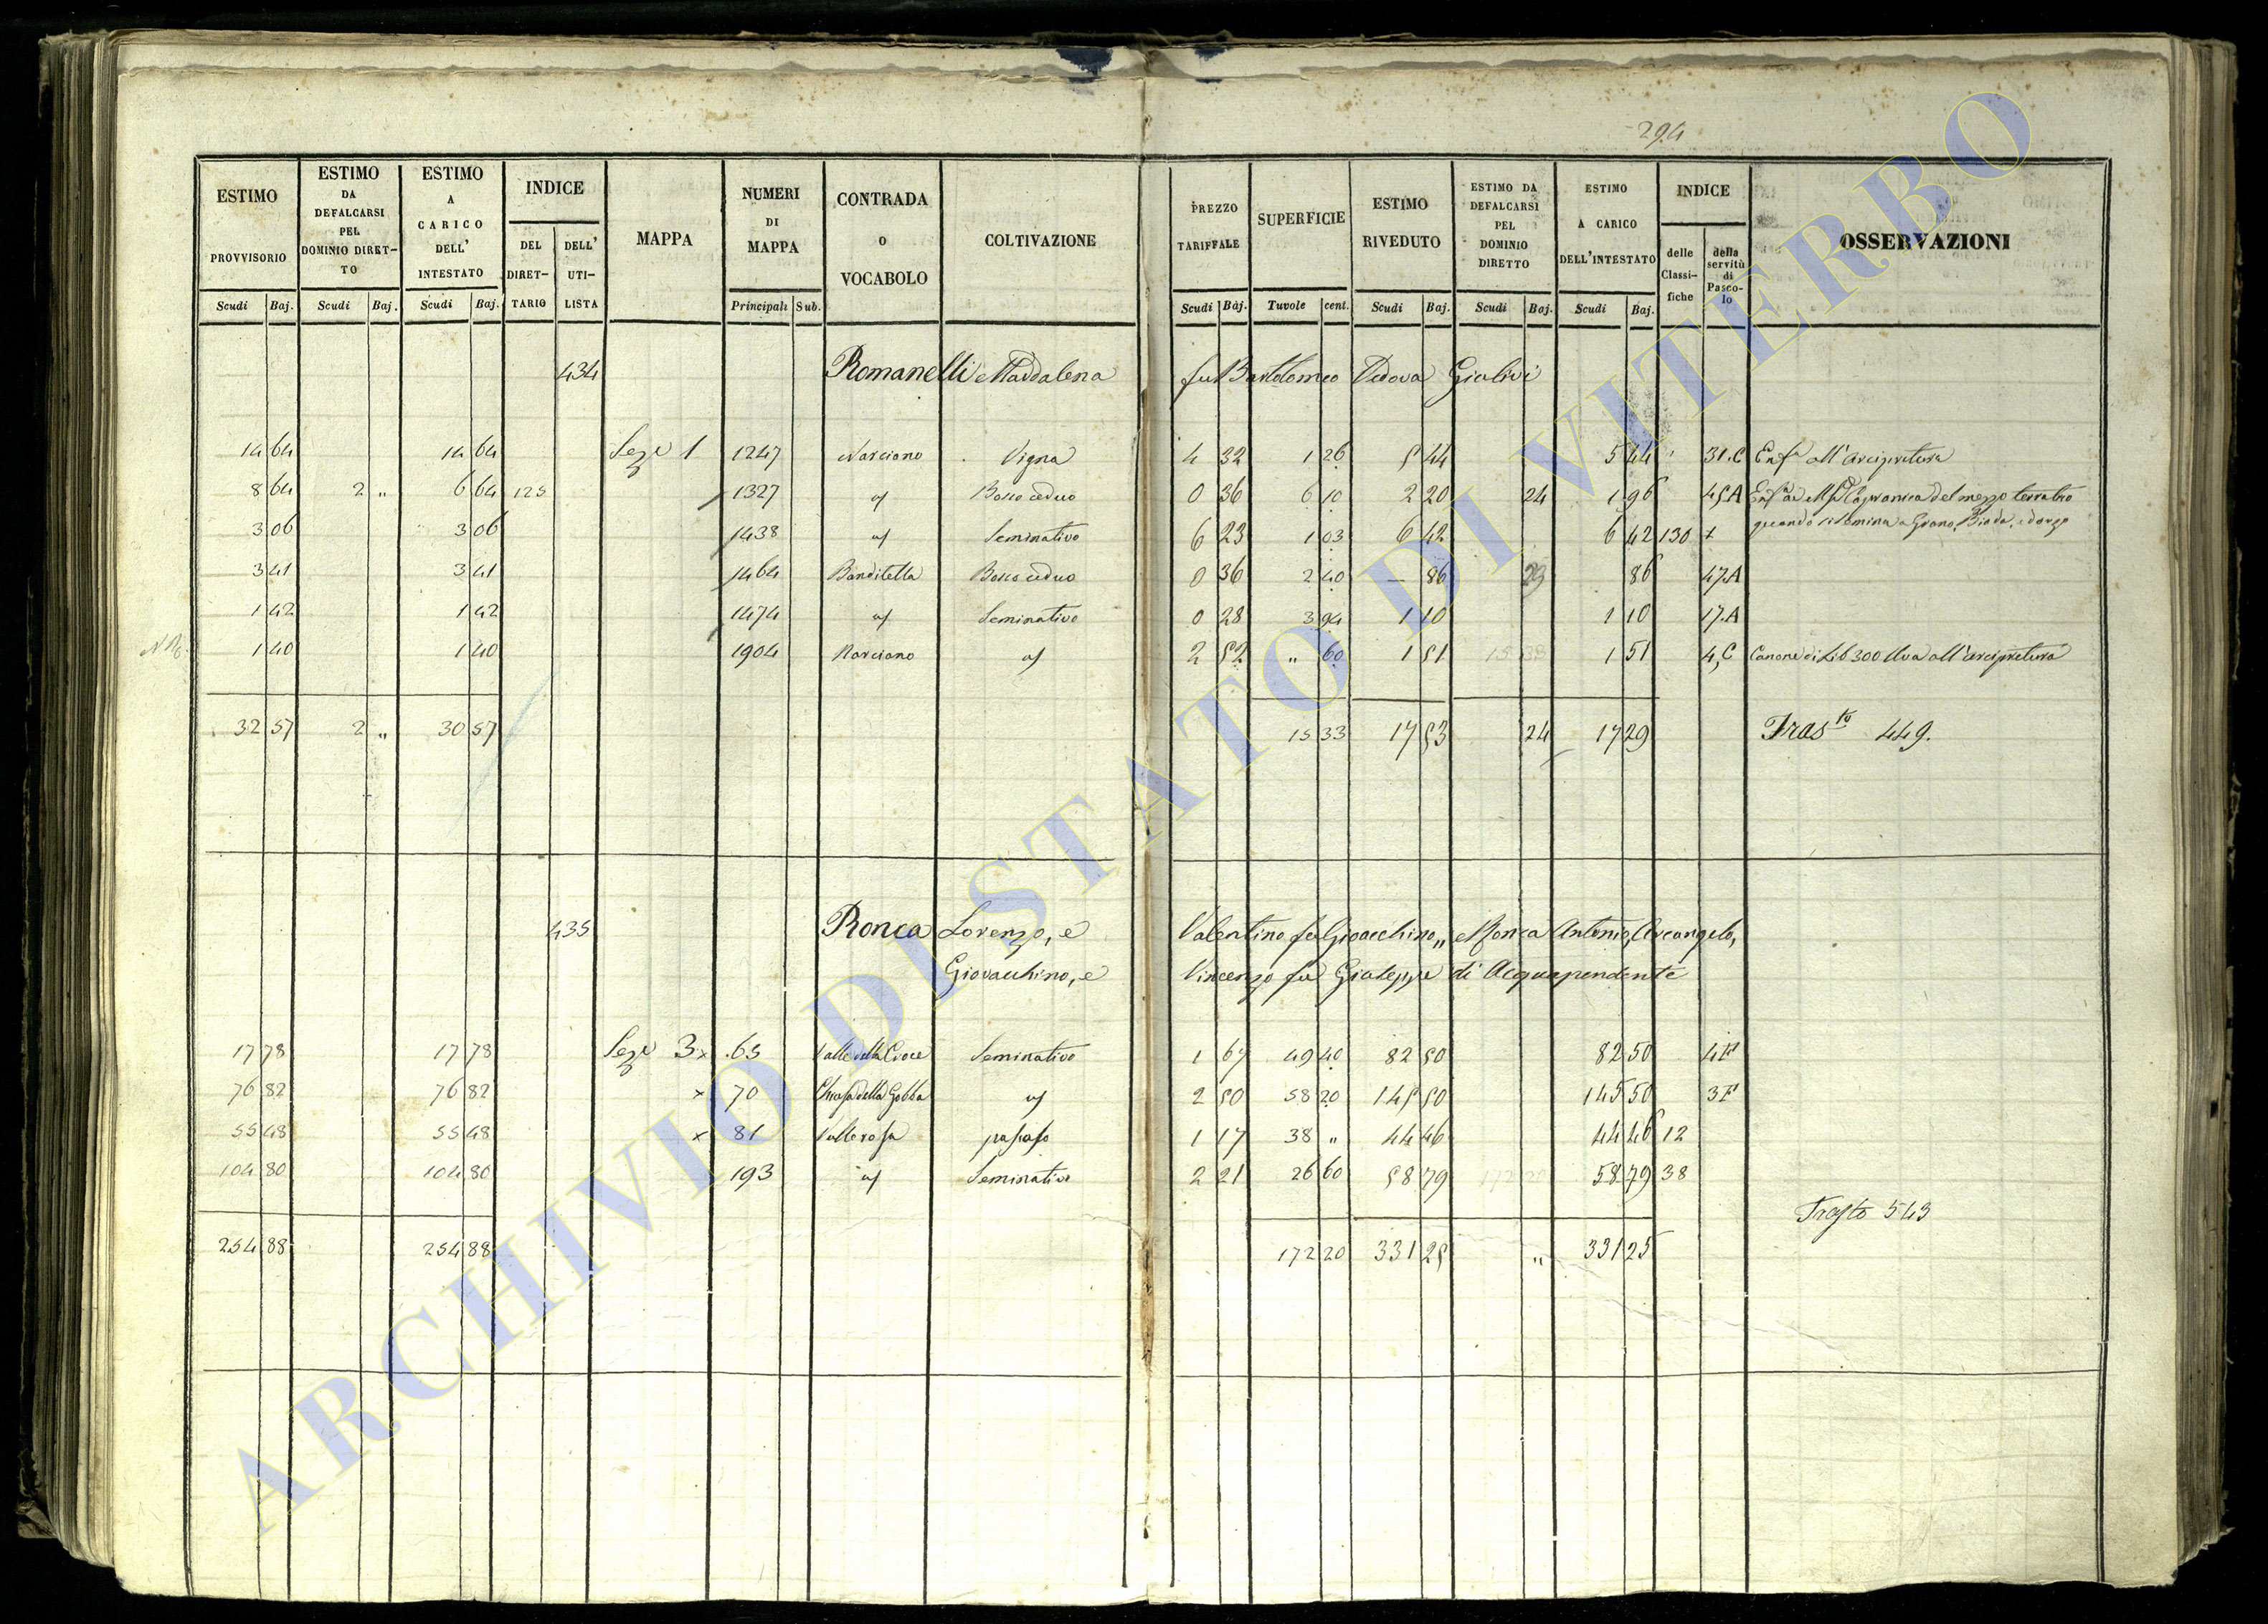 294
ESTIMO PROVVISORIO Scudi Baj.
ESTIMO DA DEFALCARSI PEL DOMINIO DIRETTO Scudi Baj.
ESTIMO A CARICO DELL' INTESTATO Scudi Baj.
INDICE DEL DIRETTARIO DELL' UTILISTA
MAPPA
NUMERI DI MAPPA Principali Sub.
CONTRADA O VOCABOLO
COLTIVAZIONE
PREZZO TARIFFALE Scudi Baj.
SUPERFICIE Tavole cent.
ESTIMO RIVEDUTO Scudi Baj.
ESTIMO DA DEFALCARSI PEL DOMINIO DIRETTO Scudi Baj.
ESTIMO A CARICO DELL'INTESTATO Scudi Baj.
INDICE delle Classifiche della servitù di Pascolo
OSSERVAZIONI
434 Romanelli Maddalena fu Bartolomeo Vedova Giulivi
14 64 14 64 Seze 1 1247 Narciano Vigna 4 32 1 26 5 44 5 44 31.C Enfa all'Arcipretura
8 64 2 " 6 64 125 1327 " Bosco ceduo 0 36 6 10 2 20 24 1 96 45A del mezzo terratico
quando si semina a Grano, Biada, ed orzo
3 06 3 06 1438 " Seminativo 6 23 1 03 6 42 6 42 130
3 41 3 41 1464 Banditella Bosco ceduo 0 36 2 40 — 86 29 86 47.A
1 42 1 42 1474 " Seminativo 0 28 3 94 1 10 1 10 17.A
1 40 1 40 1904 Narciano " 2 52 " 60 1 51 1 51 4,C Canone di Lib 300 Uva all'Arcipretura
32 57 2 " 30 57 15 33 17 53 24 17 29 Trasto 449.
435 Ronca Lorenzo, e Valentino fu Gioacchino,, Antonio, Arcangelo,
Giovacchino, e Vincenzo fu Giuseppe di Acquapendente
17 78 17 78 Seze 3 x 65 Valle della Croce Seminativo 1 67 49 40 82 50 82 50 4F
76 82 76 82 x 70 Chiusa della Gobba " 2 50 58 20 145 50 145 50 3F
55 48 55 48 x 81 Vallerosa 1 17 38 " 44 46 44 46 12
104 80 104 80 193 " Seminativo 2 21 26 60 58 79 58 79 38
Trasto 543
254 88 254 88 172 20 331 25 " 331 25
ARCHIVIO DI STATO DI VITERBO